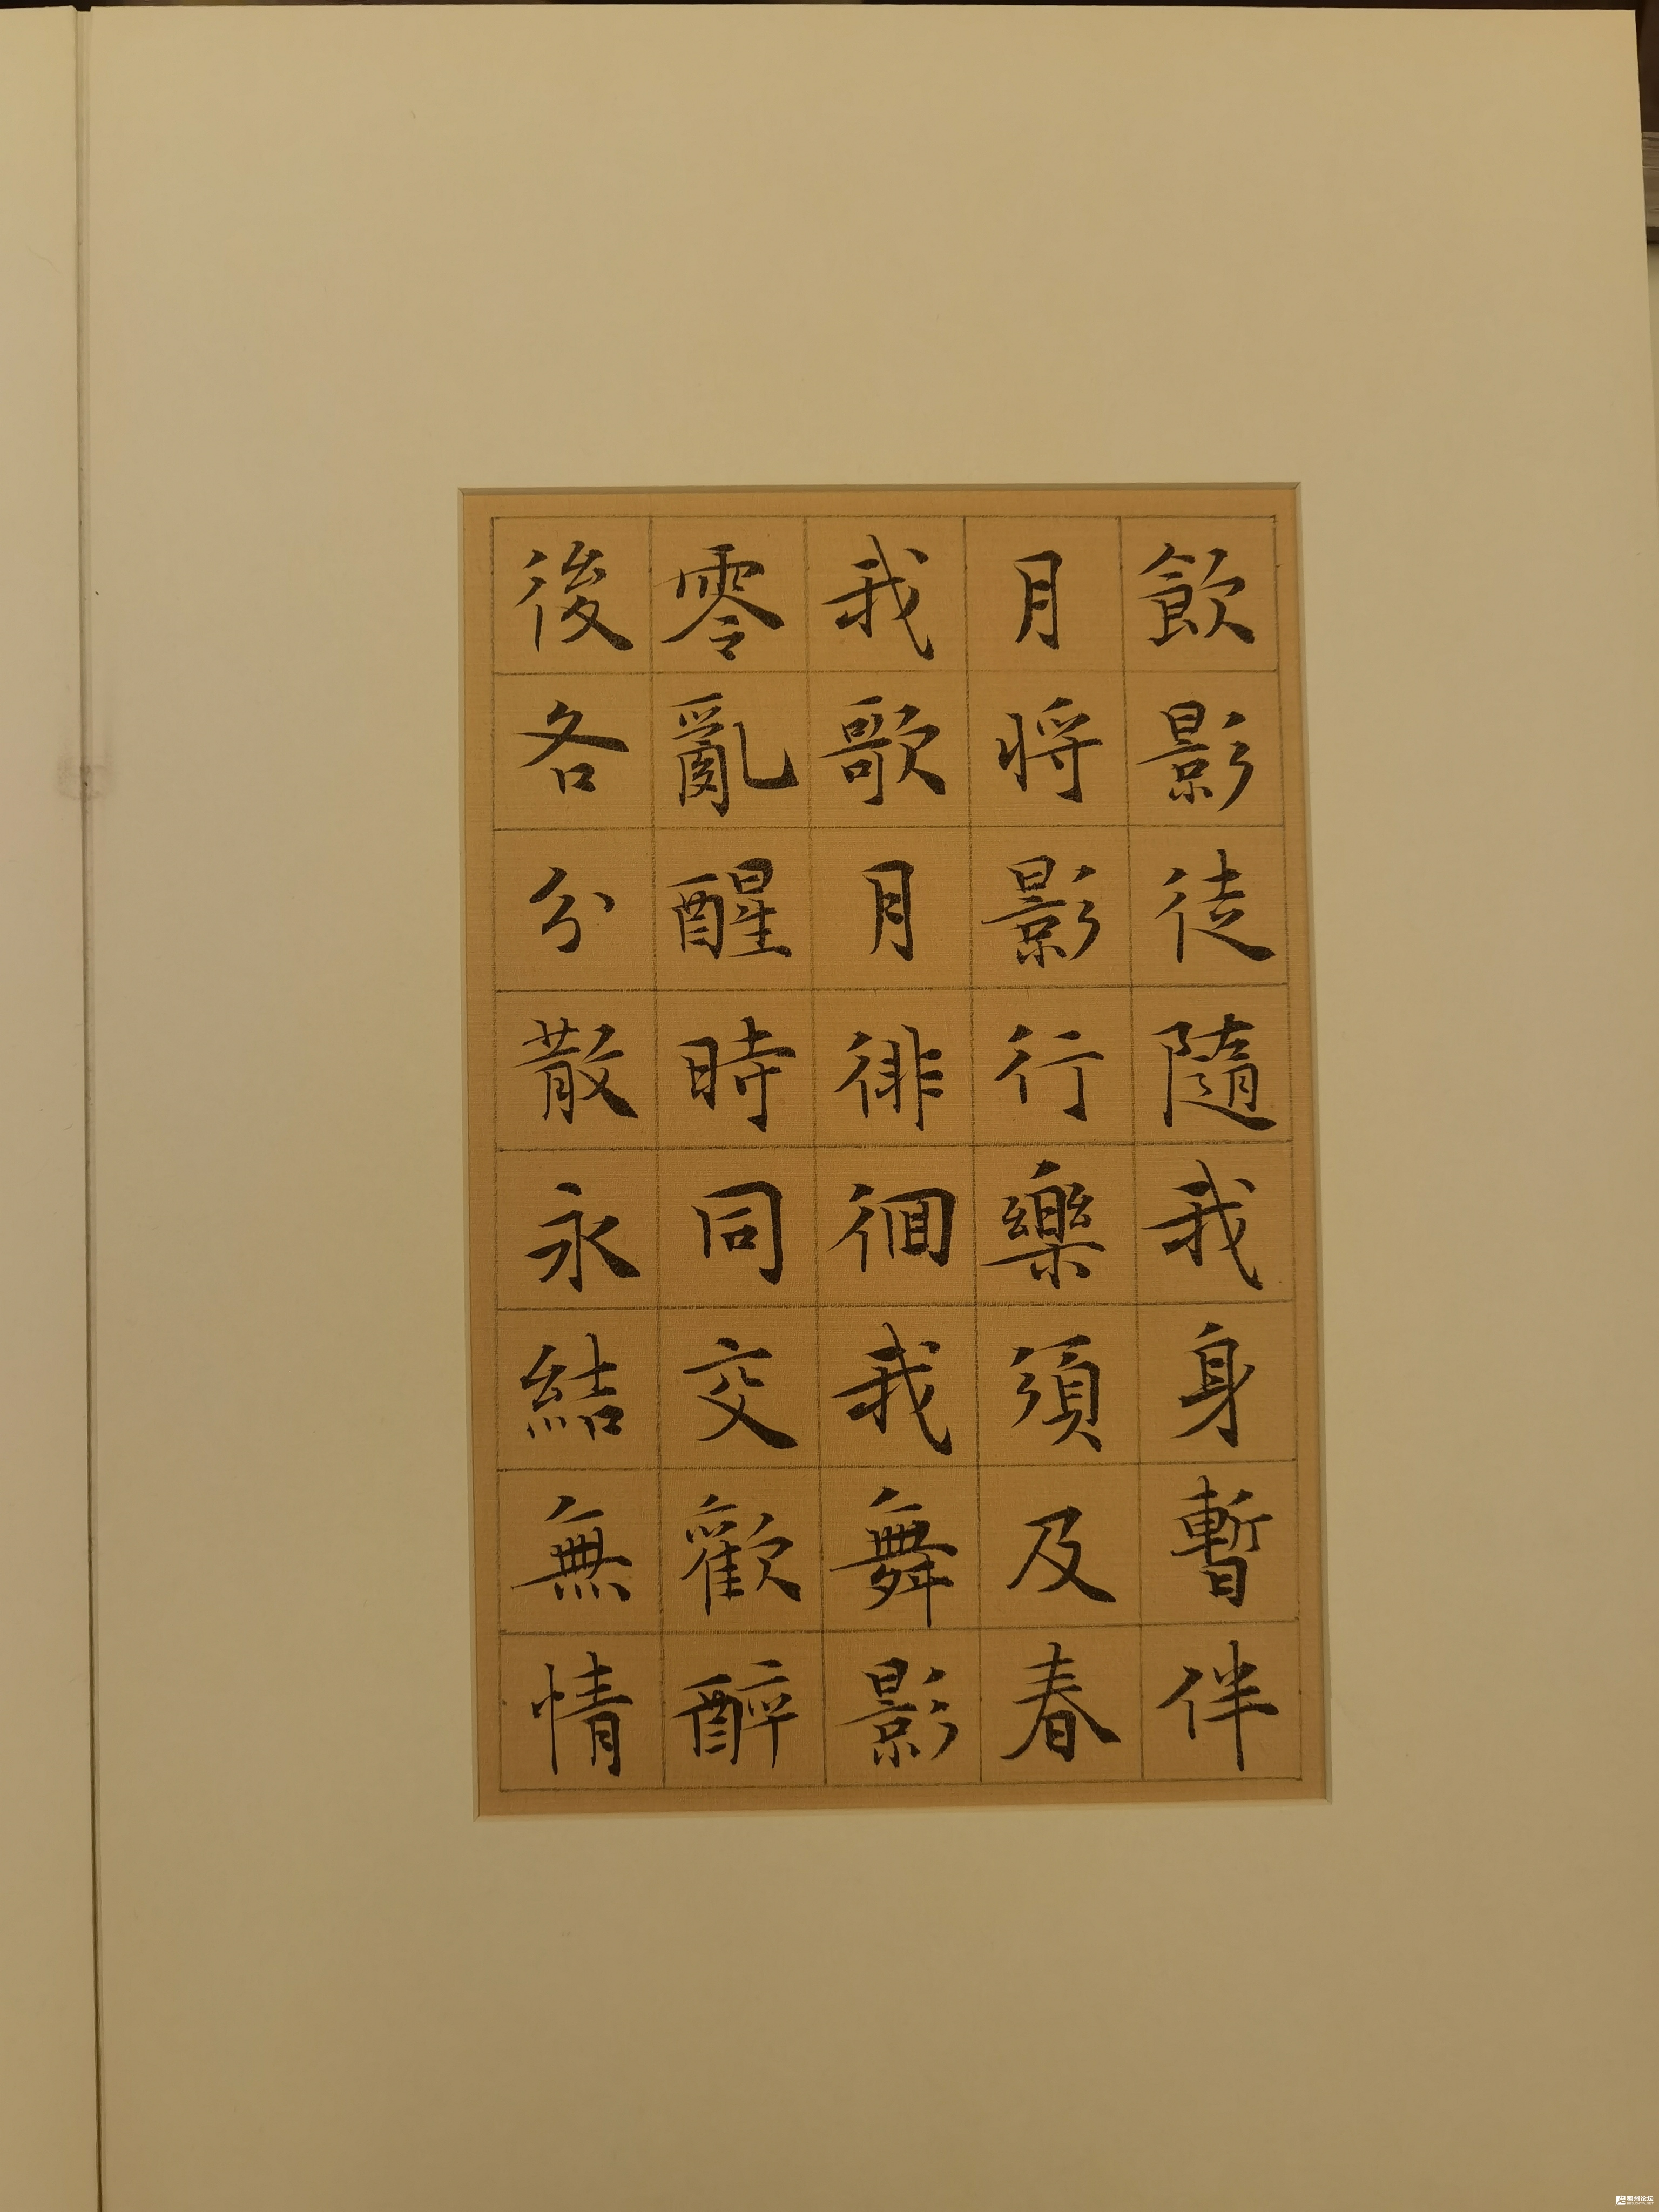 飲影徒隨我身暫伴
月將影行樂須及春
我歌月徘徊我舞影
零亂醒時同交歡醉
後各分散永結無情